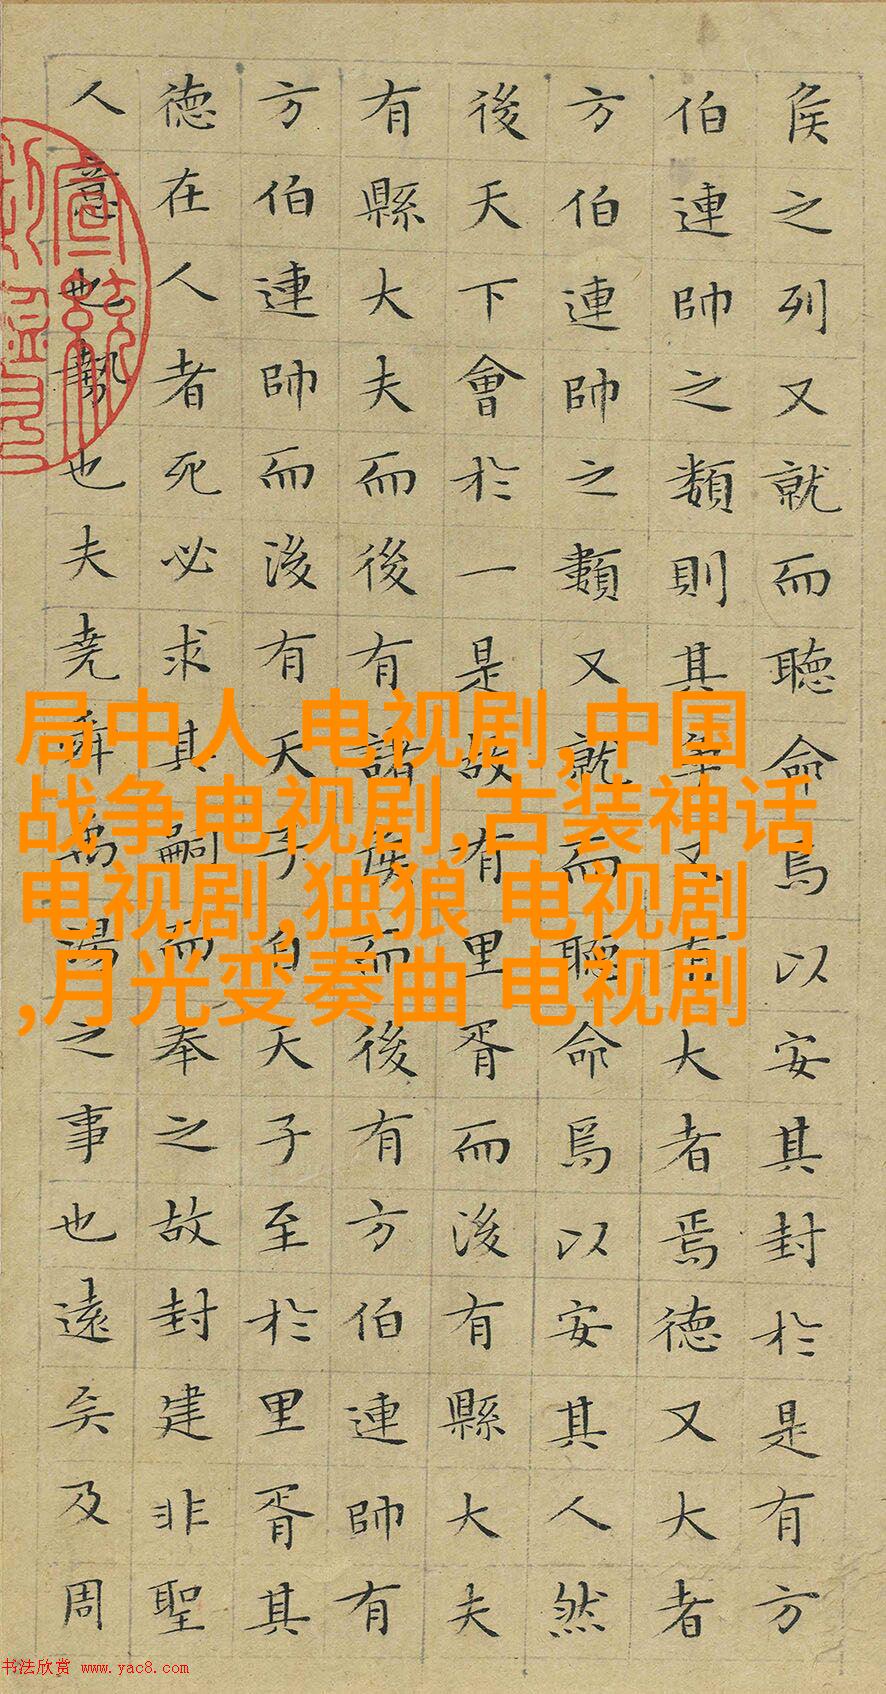 侯之列又就而聽命焉以安其封於是有方
伯連帥之類則其爭又有大者焉德又大者
方伯連帥之類又就而聽命焉以安其人然
後天下會於一是故有里胥而後有縣大夫
有縣大夫而後有諸侯而後有方伯連帥有
方伯連帥而後有天子自天子至於里胥其
德在人者死必求其嗣而奉之故封建非聖
人意也勢也夫堯舜禹湯之事也遠矣及周
局中人 电视剧,中国
战争电视剧,古装神话
电视剧,独狼 电视剧
,月光变奏曲 电视剧
书法欣赏 www.yac8.com